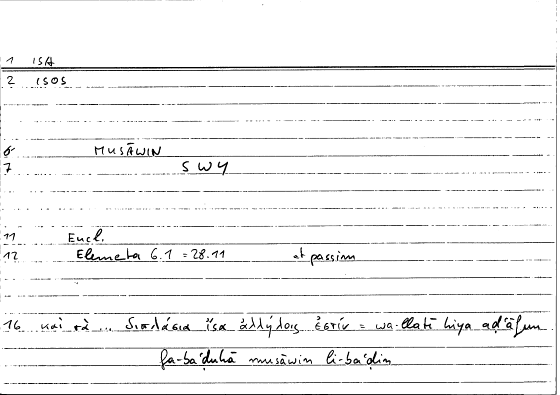 1 ISA
2 ISOS
6 MUSĀWIN
7 SWY
11 Eucl.
12 Elementa 6.1 = 28.11 et passim
16 καὶ τὰ ... διπλάσια ἴσα ἀλλήλοις ἐστίν = wa-llatī hiya aḍʿāfun
fa-baʿḍuhā musāwin li-baʿḍin